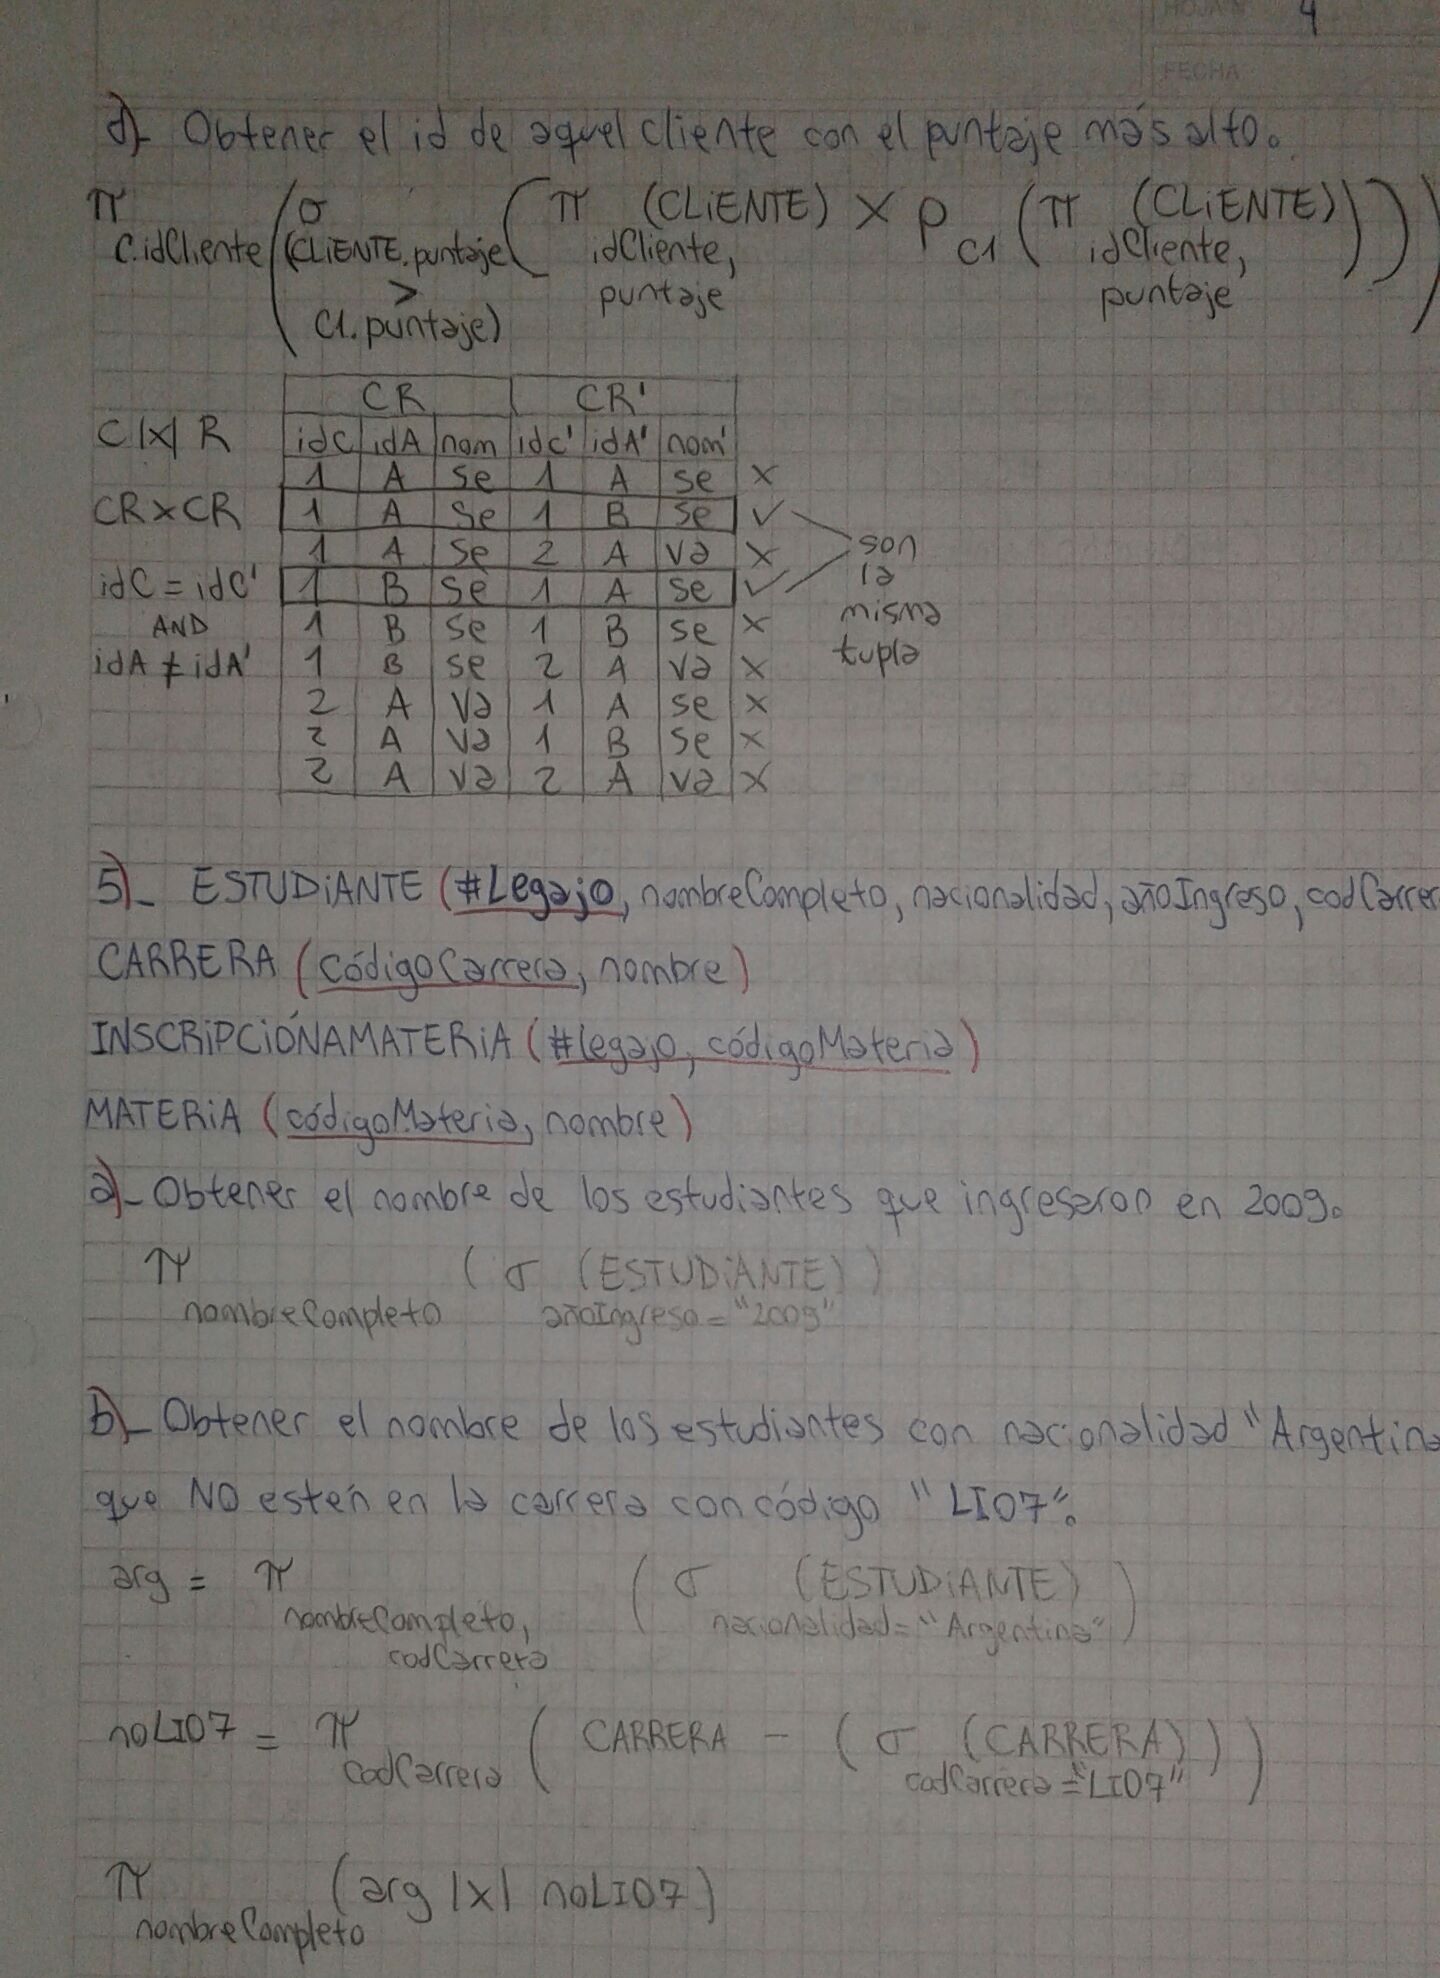 HOJA N 4
FECHA
d)- Obtener el id de aquel cliente con el puntaje más alto.
π C.idCliente (σ (CLIENTE.puntaje > C1.puntaje) (π idCliente, puntaje (CLIENTE) X ρ C1 (π idCliente, puntaje (CLIENTE))))
CR CR'
C |x| R idC idA nom idC' idA' nom'
1 A se 1 A se x
CR x CR 1 A se 1 B se ✓
1 A se 2 A va x
son
idC = idC' 1 B se 1 A se ✓
la
AND 1 B se 1 B se x
misma
idA ≠ idA' 1 B se 2 A va x
tupla
2 A va 1 A se x
2 A va 1 B se x
2 A va 2 A va x
5)- ESTUDIANTE (#Legajo, nombreCompleto, nacionalidad, añoIngreso, codCarrer
CARRERA (códigoCarrera, nombre)
INSCRIPCIÓNAMATERIA (#legajo, códigoMateria)
MATERIA (códigoMateria, nombre)
a)- Obtener el nombre de los estudiantes que ingresaron en 2009.
π nombreCompleto (σ añoIngreso = "2009" (ESTUDIANTE))
b)- Obtener el nombre de los estudiantes con nacionalidad "Argentina
que NO estén en la carrera con código "LI07".
arg = π nombreCompleto, codCarrera (σ nacionalidad = "Argentina" (ESTUDIANTE))
noLI07 = π codCarrera (CARRERA - (σ codCarrera = "LI07" (CARRERA)))
π nombreCompleto (arg |x| noLI07)